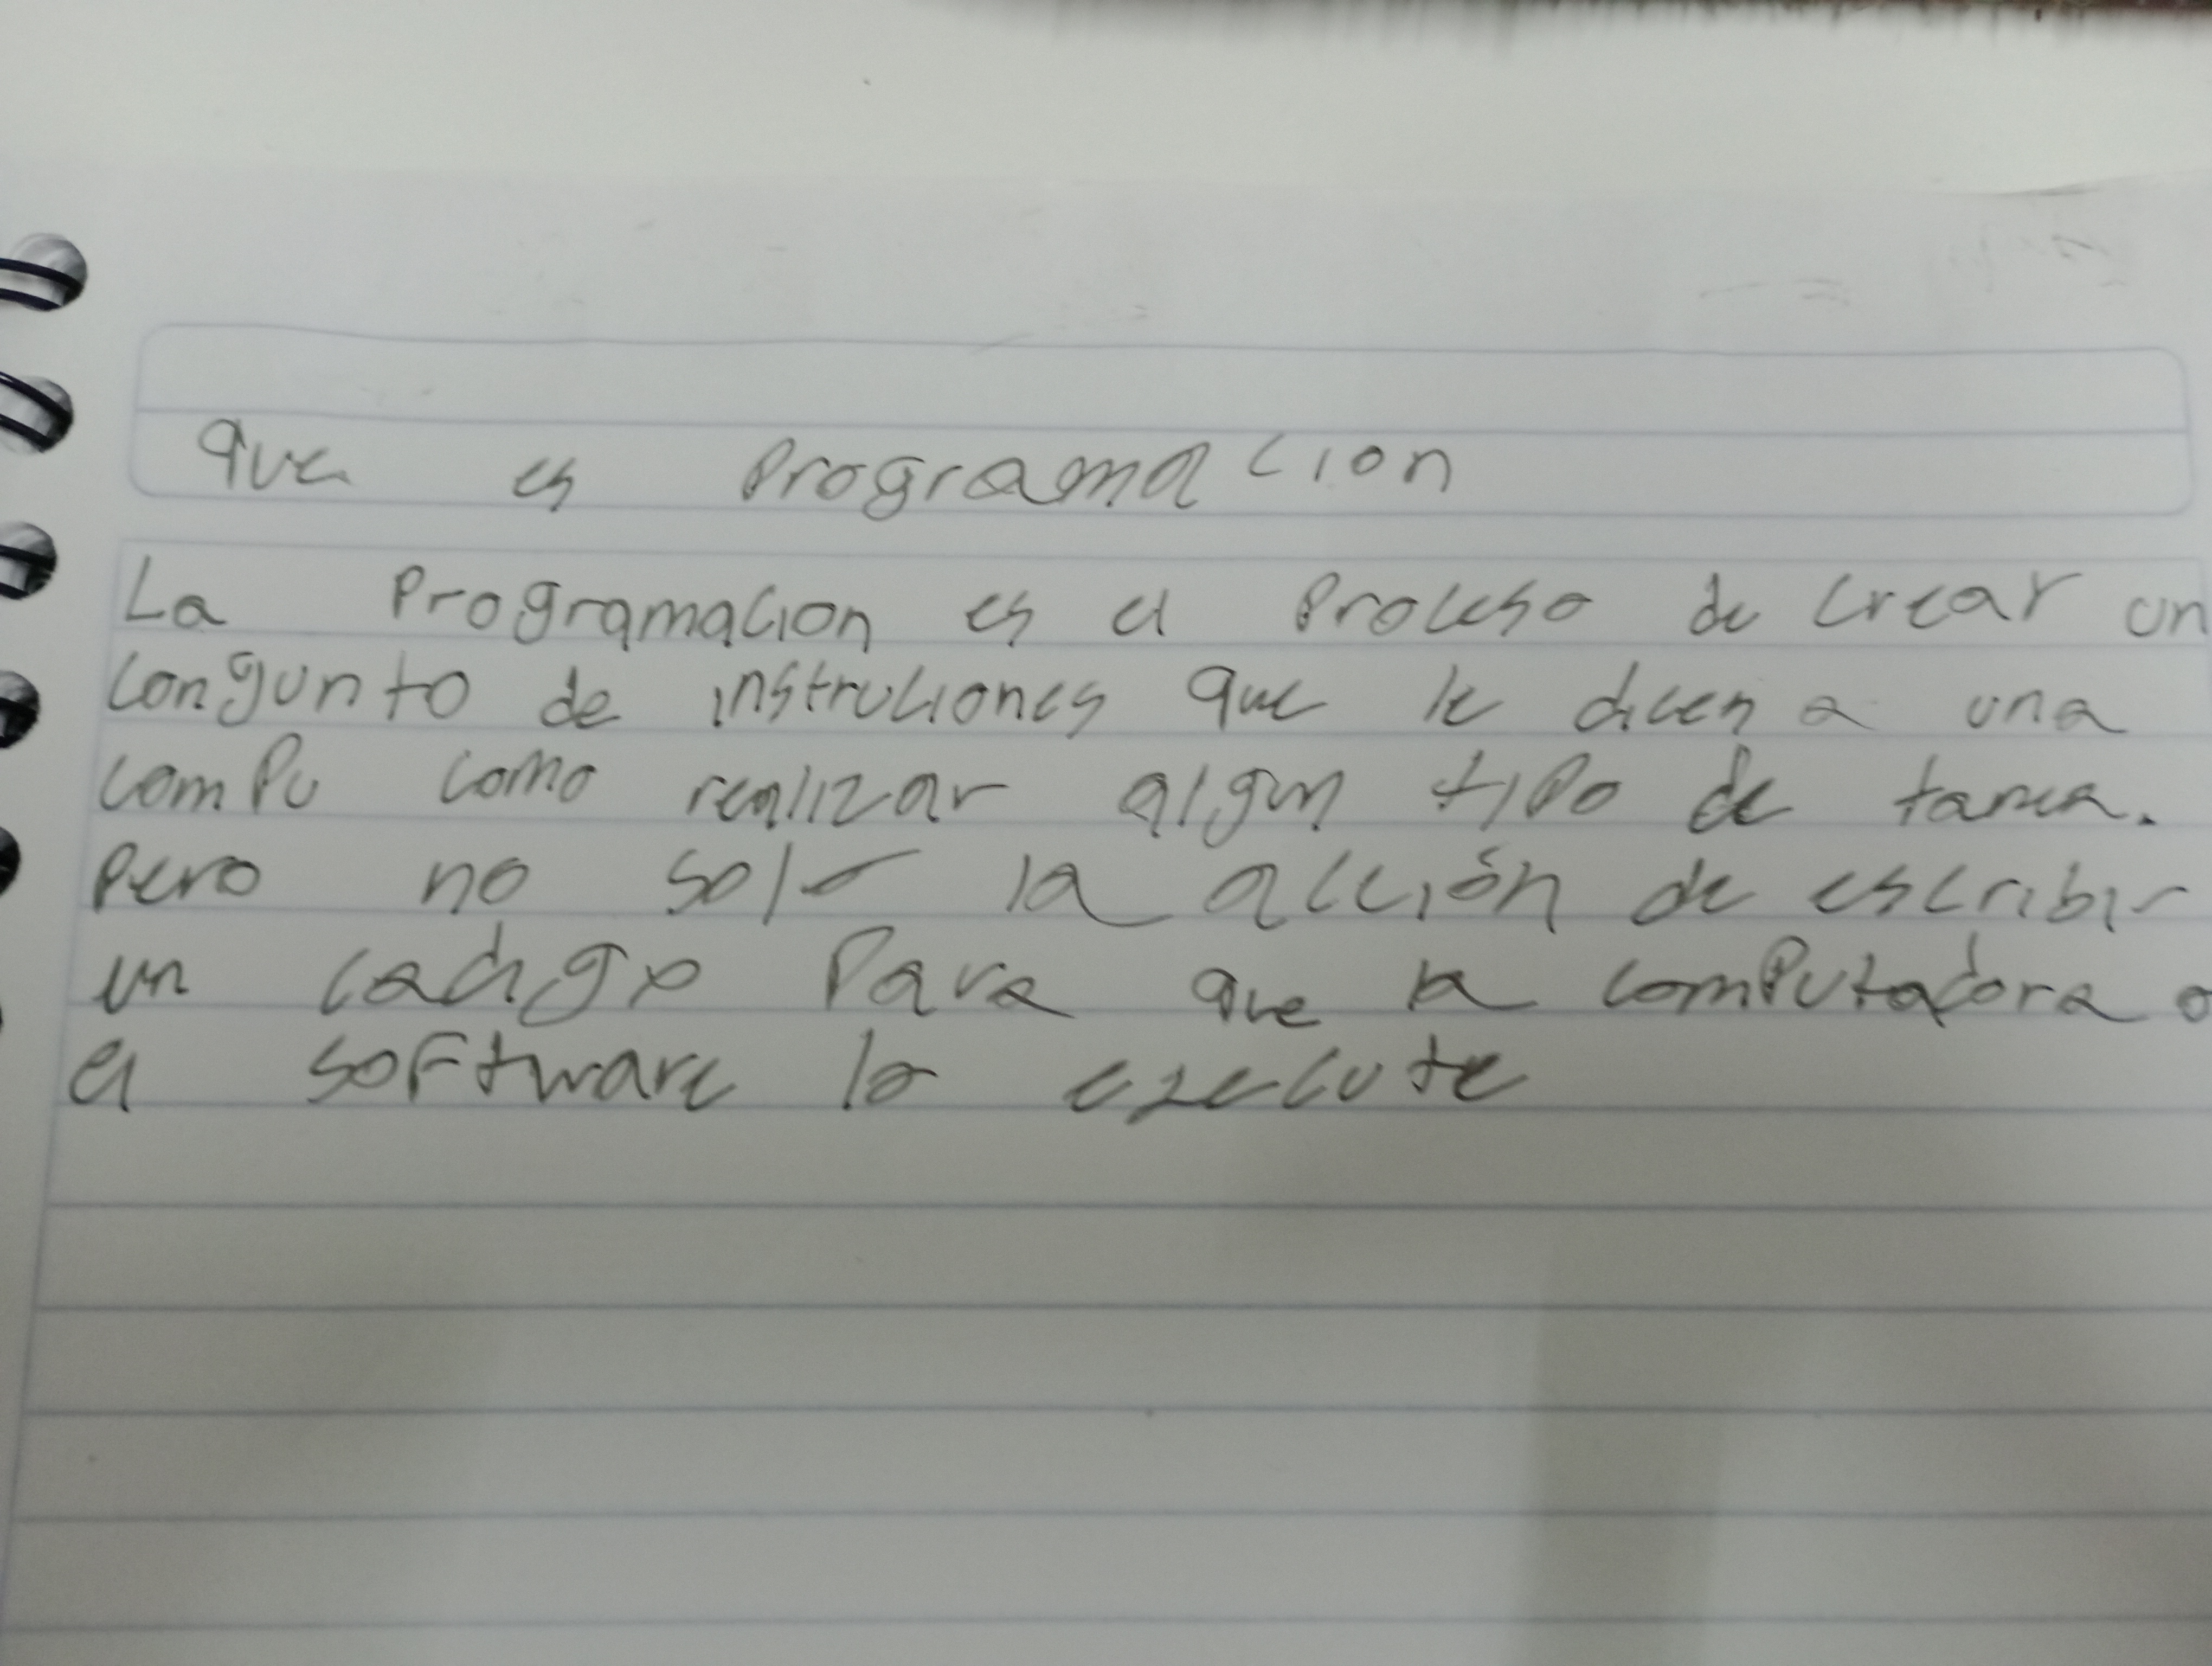 que es Programacion
La Programacion es el Proceso de crear un
congunto de instruciones que le dicen a una
comPu como realizar algun tipo de tarea.
Pero no solo la acción de escribir
un codigo Para que la comPutadora o
el software lo ejecute